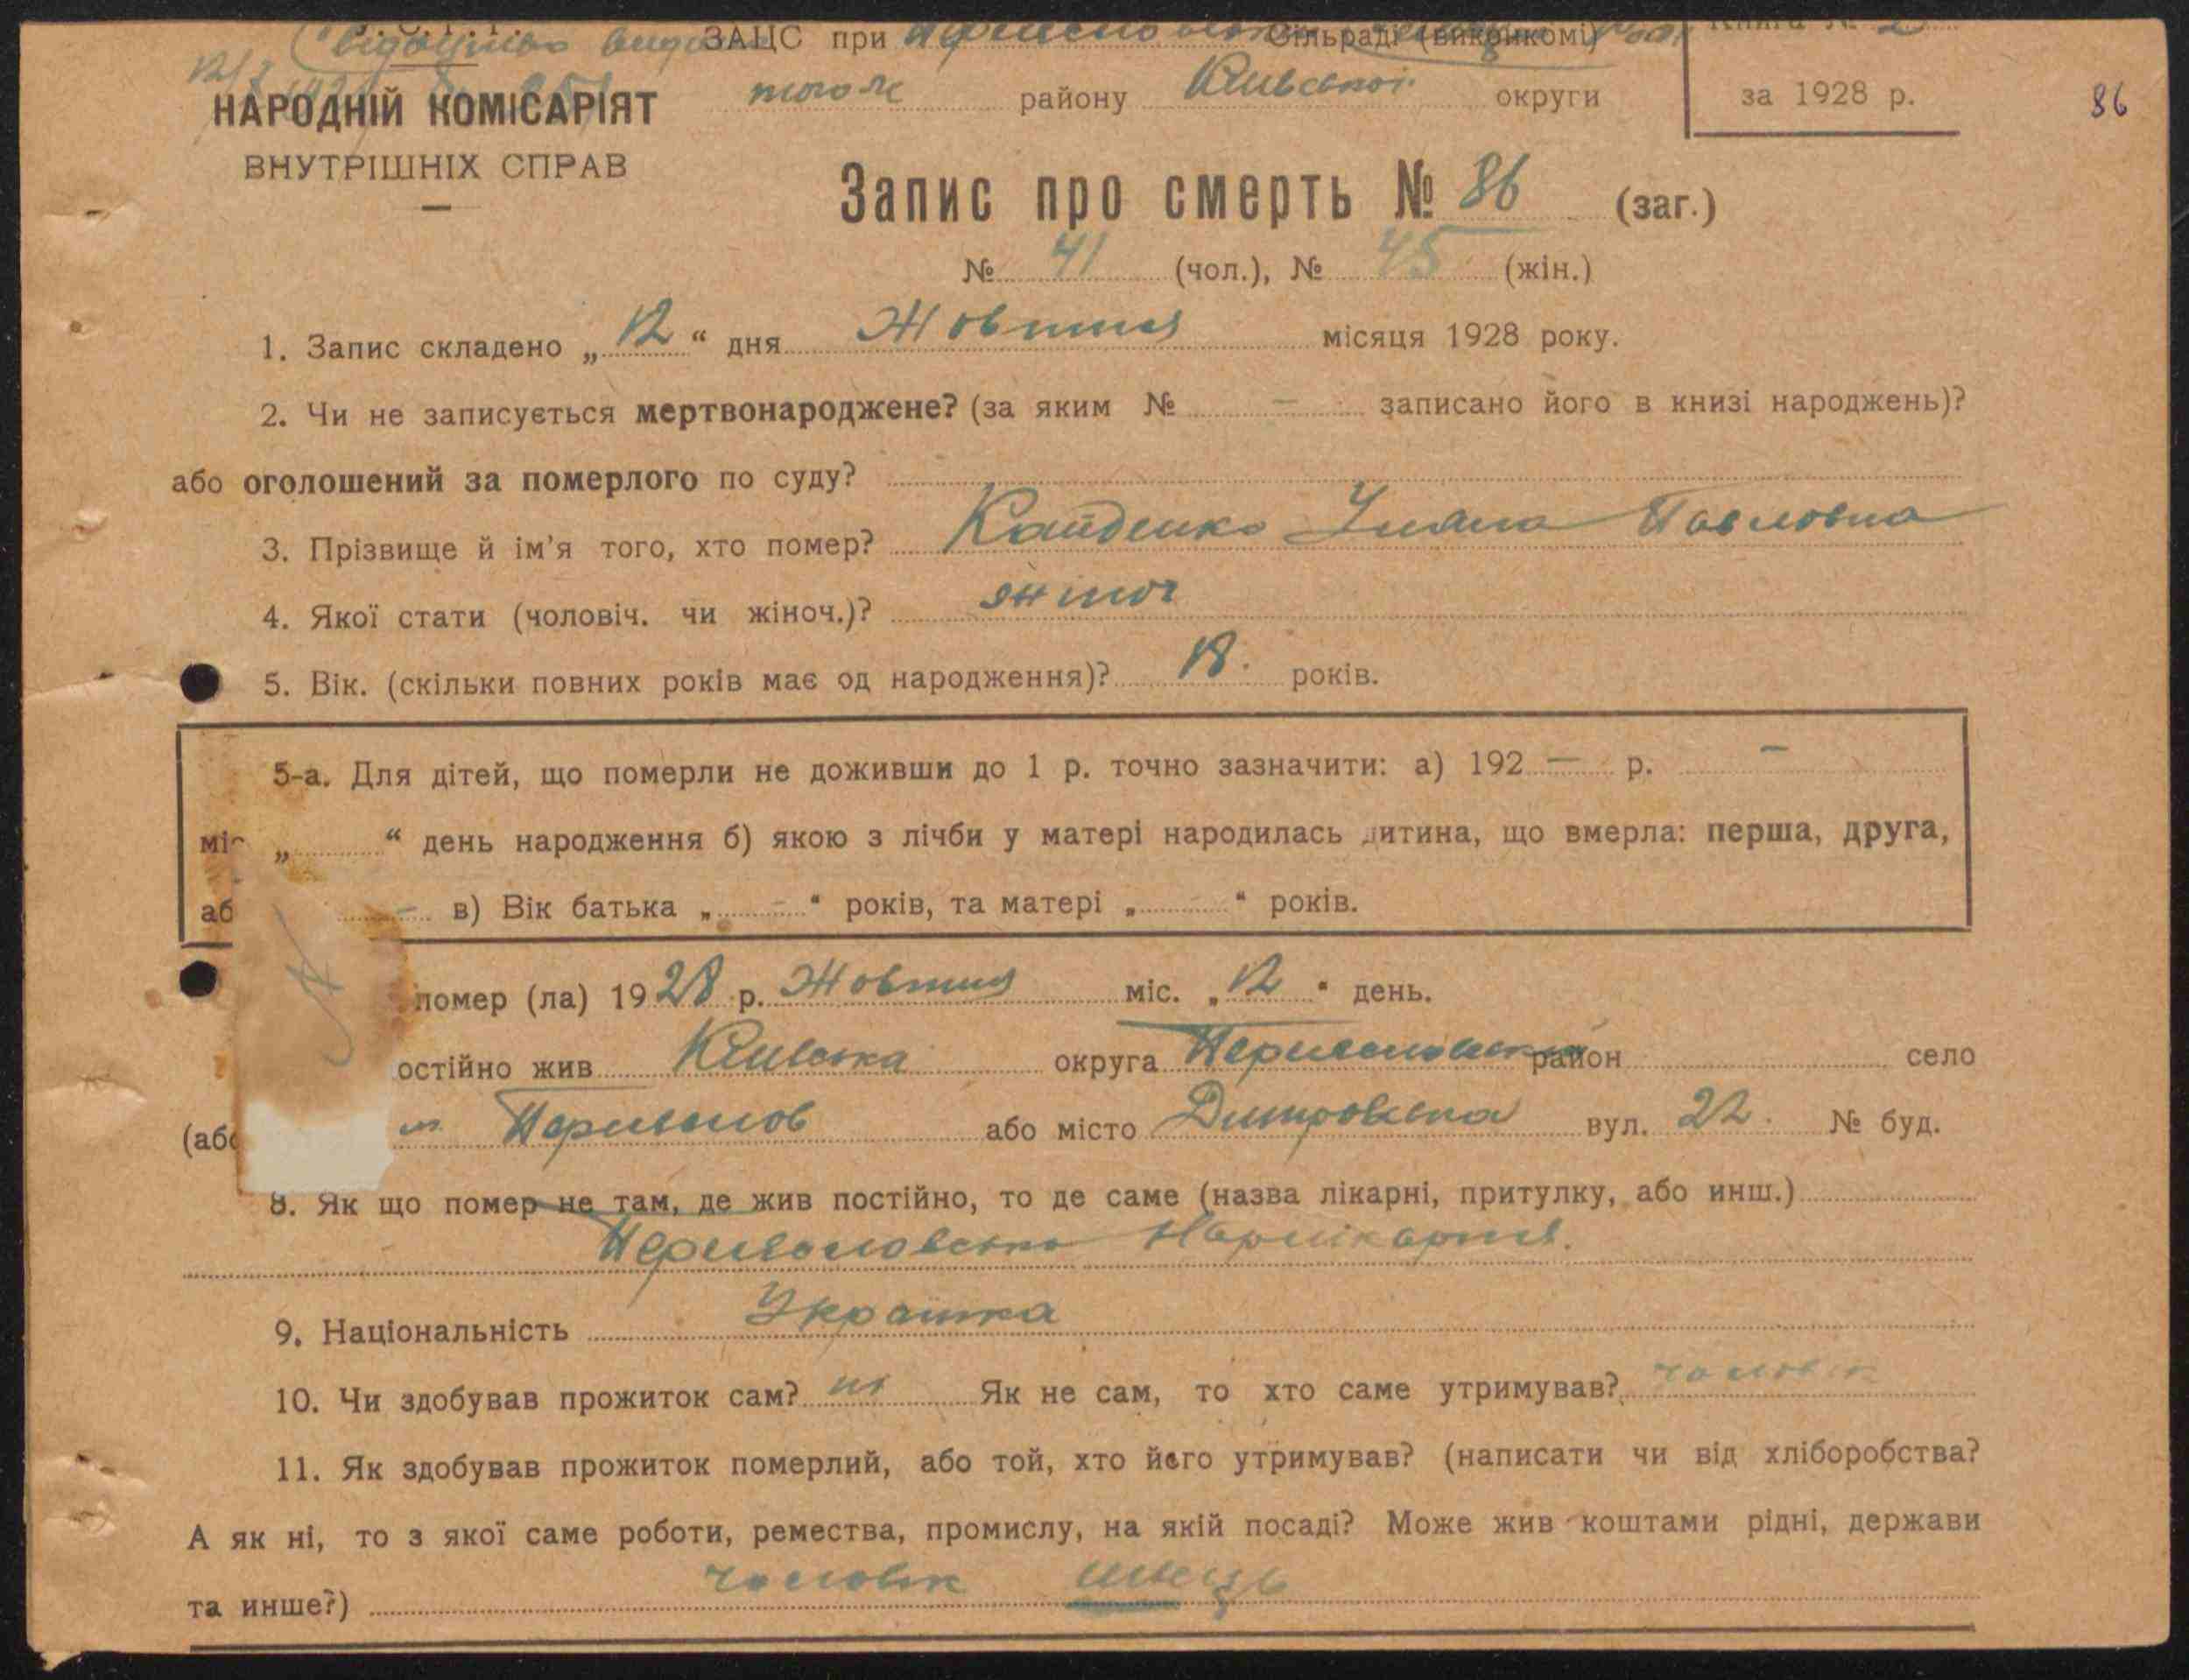 Свідоцтво видано ЗАЦС при сільраді (викрикомі) Книга № 2
НАРОДНІЙ КОМІСАРІЯТ
ВНУТРІШНІХ СПРАВ
того ж району Київської округи
за 1928 р.
86
Запис про смерть № 86 (заг.)
№ 41 (чол.), № 45 (жін.)
1. Запис складено „ 12 “ дня Жовтня місяця 1928 року.
2. Чи не записується мертвонароджене? (за яким № – записано його в книзі народжень)?
або оголошений за померлого по суду?
3. Прізвище й ім'я того, хто помер? Кайденко Уляна Павловна
4. Якої стати (чоловіч. чи жіноч.)? жіноч
5. Вік. (скільки повних років має од народження)? років.
5-а. Для дітей, що померли не доживши до 1 р. точно зазначити: а) 192 – р. –
міс „ “ день народження б) якою з лічби у матері народилась дитина, що вмерла: перша, друга,
аб – в) Вік батька „ – “ років, та матері „ – “ років.
помер (ла) 1928 р. Жовтня міс. „ 12 “ день.
остійно жив Київська округа Переяславський район село
(або м Переяслов або місто Дмитровська вул. 22. № буд.
8. Як що помер не там, де жив постійно, то де саме (назва лікарні, притулку, або инш.)
Переясловська Нарлікарня.
9. Національність Українка
10. Чи здобував прожиток сам? ні Як не сам, то хто саме утримував? чоловік
11. Як здобував прожиток померлий, або той, хто його утримував? (написати чи від хліборобства?
А як ні, то з якої саме роботи, ремества, промислу, на якій посаді? Може жив коштами рідні, держави
та инше?) чоловік швець